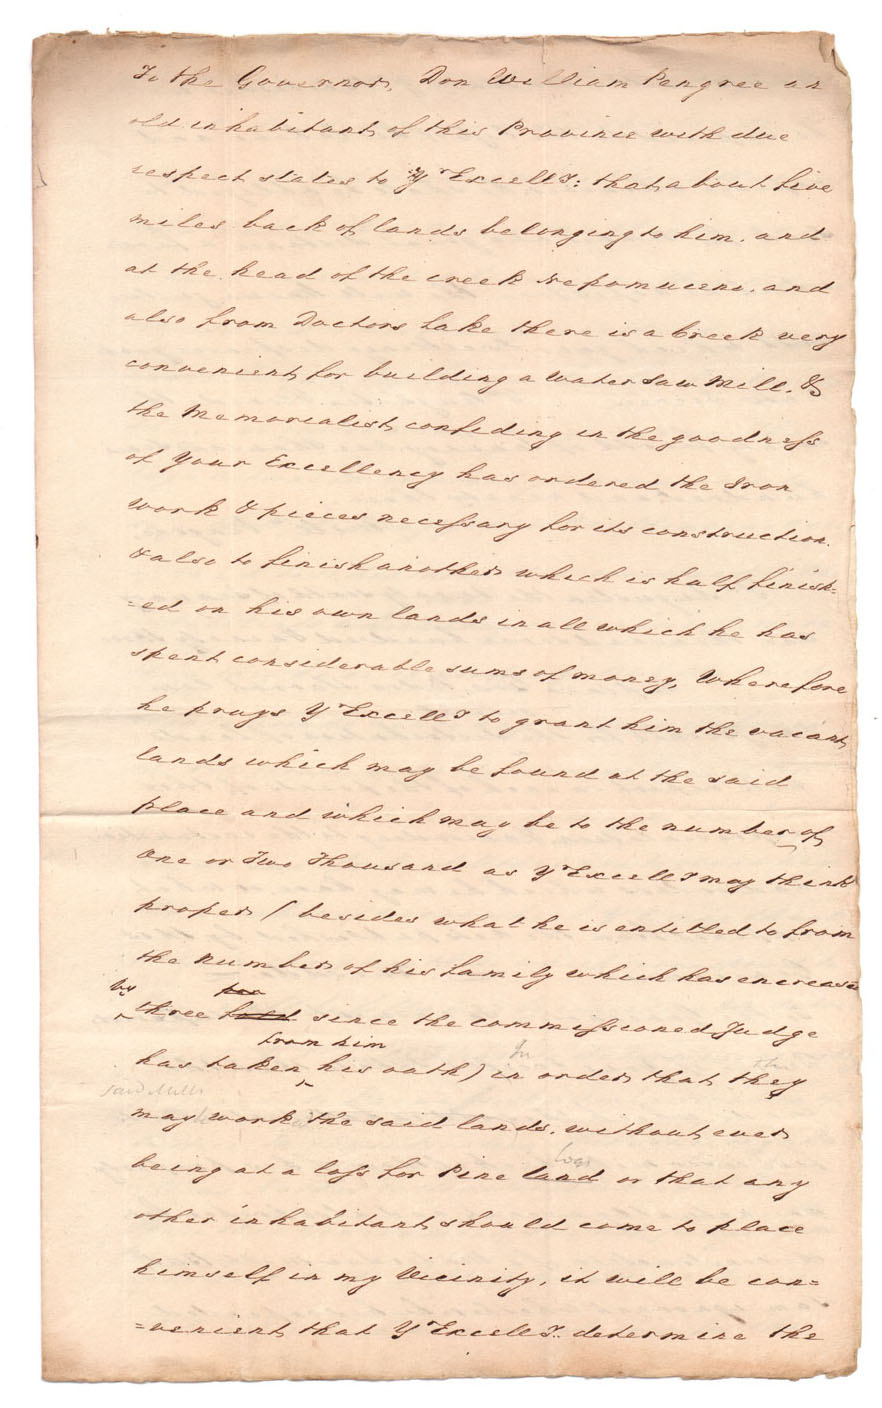 To the Governor, Don William Pengree an
old inhabitant of this Province with due
respect states to Yr Excelly: that about five
miles back of lands belonging to him, and
at the head of the creek Nepomuceno, and
also from Doctors Lake there is a Creek very
convenient for building a water saw Mill, &
the Memorialist confiding in the goodness
of Your Excellency has ordered the Iron
work & pieces necessary for its construction
& also to finish another which is half finish-
=ed on his own lands in all which he has
spent considerable sums of money, Wherefore
he prays Yr Excelly to grant him the vacant
lands which may be found at the said
place and which may be to the number of
One or Two Thousand as Yr Excelly may think
proper (besides what he is entitled to from
the number of his family which has encreased
by three for fold since the commissioned Judge
has taken from him his oath) in order that they
saw Mills
may work the said lands, without ever
being at a loss for Pine land logs or that any
other inhabitant should come to place
himself in my Vicinity, it will be con=
=venient that Yr Excelly. determine the